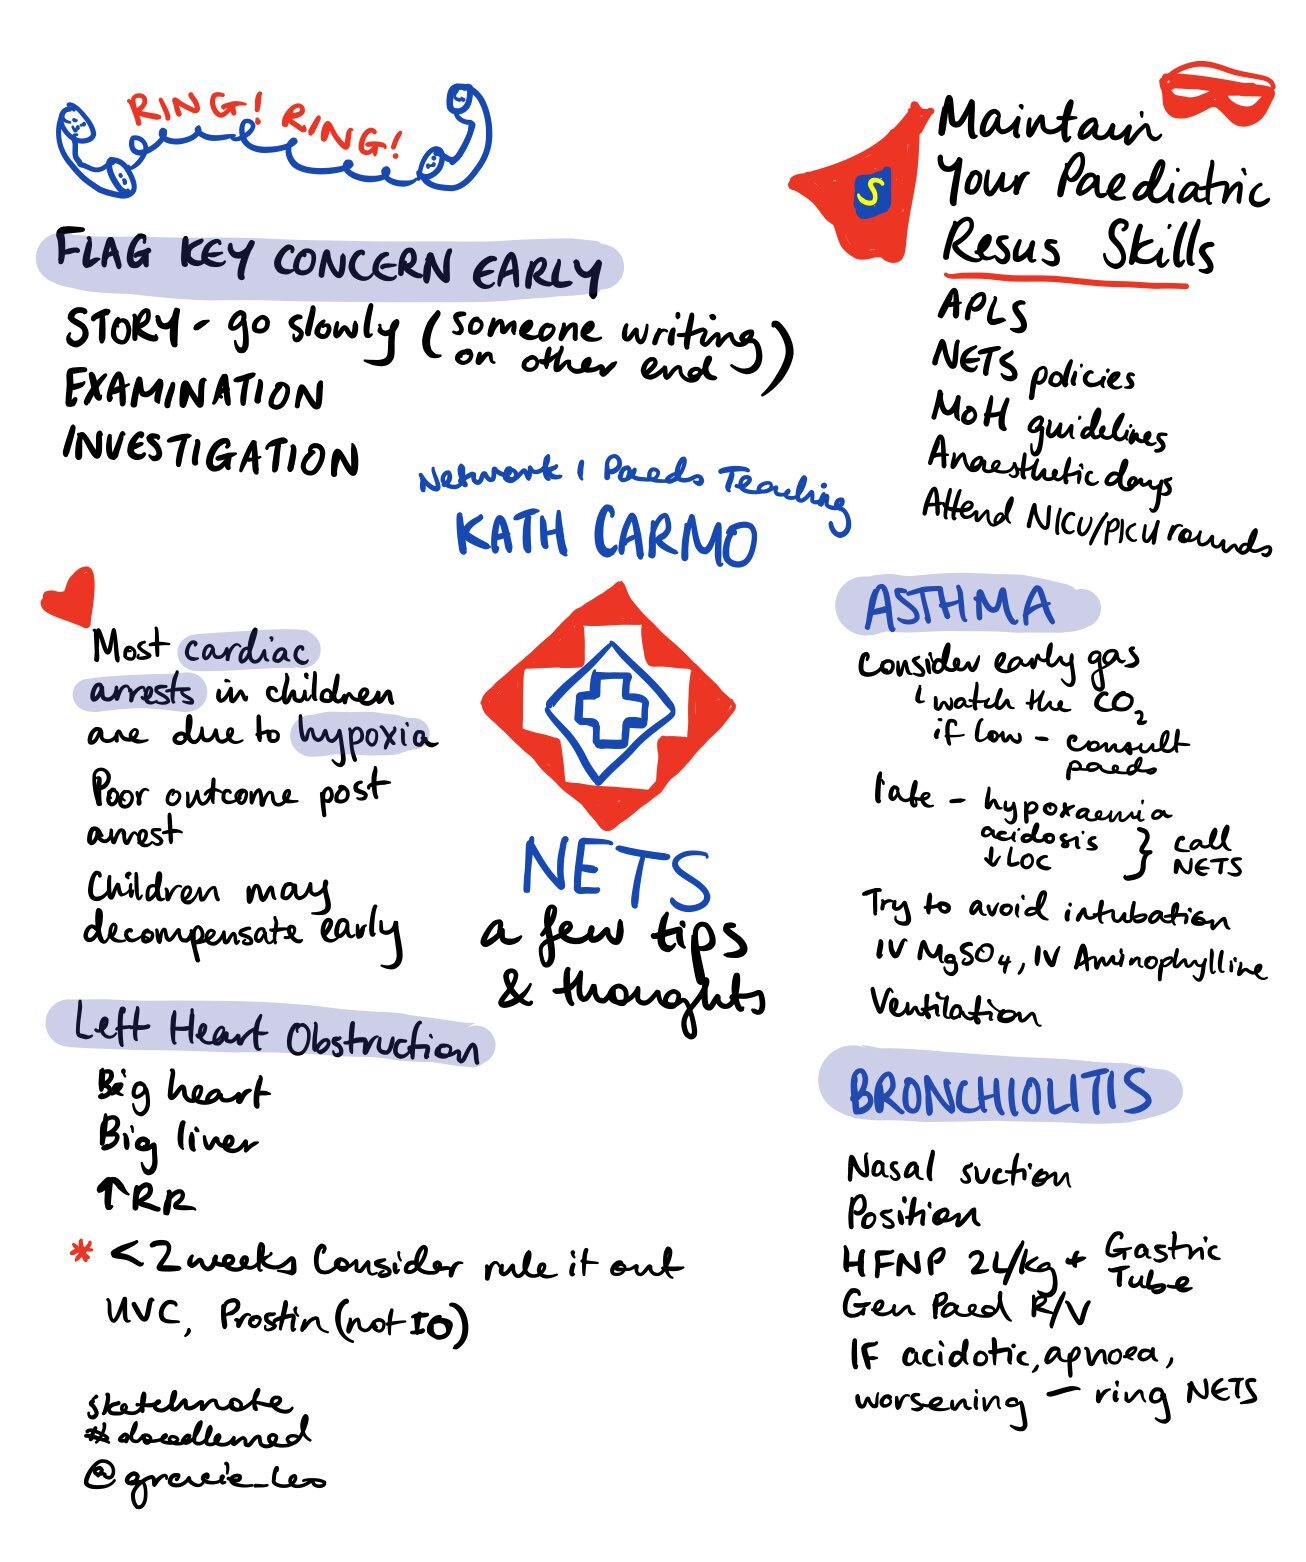 RING! RING!
FLAG KEY CONCERN EARLY
STORY - go slowly (someone writing
on other end)
EXAMINATION
INVESTIGATION
Maintain
Your Paediatric
Resus Skills
S
APLS
NETS policies
MoH guidelines
Anaesthetic days
Attend NICU/PICU rounds
Network 1 Paeds Teaching
KATH CARMO
NETS
a few tips
& thoughts
Most cardiac
arrests in children
are due to hypoxia
Poor outcome post
arrest
Children may
decompensate early
Left Heart Obstruction
Big heart
Big liver
↑RR
* <2 weeks Consider rule it out
UVC, Prostin (not IO)
ASTHMA
Consider early gas
watch the CO2
if low - consult
paeds
late - hypoxaemia
acidosis } call
↓LOC NETS
Try to avoid intubation
IV MgSO4, IV Aminophylline
Ventilation
BRONCHIOLITIS
Nasal suction
Position
HFNP 2L/kg + Gastric
Tube
Gen Paed R/V
IF acidotic, apnoea,
worsening - ring NETS
sketchnote
#doodlemed
@gracie_leo